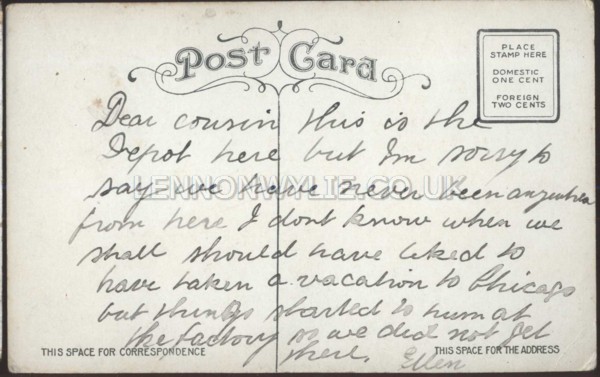 Post Card
PLACE
STAMP HERE
DOMESTIC
ONE CENT
FOREIGN
TWO CENTS
Dear cousin this is the
Depot here but Im sorry to
say we have never been anywhere
from here I dont know when we
shall should have liked to
have taken a vacation to Chicago
but things started to hum at
the factory so we did not get
there. Ellen
LENNONWYLIE.CO.UK
THIS SPACE FOR CORRESPONDENCE
THIS SPACE FOR THE ADDRESS